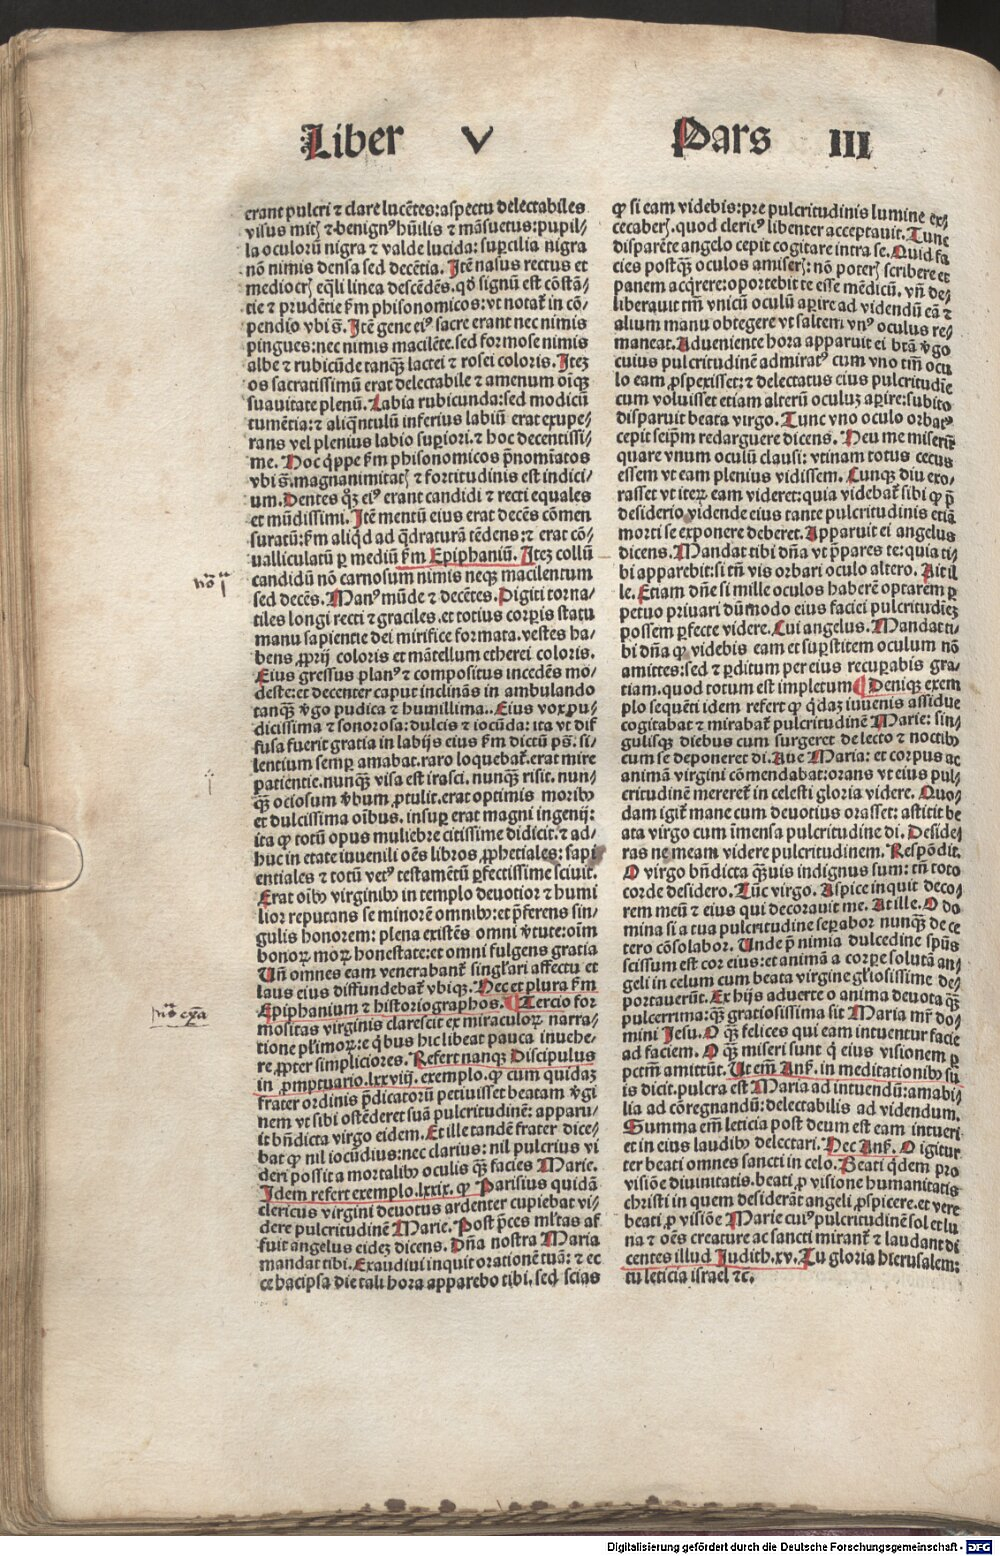 Liber V Pars III
erant pulcri ⁊ clare lucētes: aspectu delectabiles
visus mitꝭ ⁊ benignꝰ hūilis ⁊ māsuetus: pupil⸗
la oculorū nigra ⁊ valde lucida: suꝑcilia nigra
nō nimis densa sed decētia. Itē nasus rectus et
mediocrꝭ eq̄li linea descēdēs. qd̄ signū est cōstā⸗
tie ⁊ prudētie ẜm phisonomicos: vt notaṫ in cō⸗
pendio vbi s̄. Itē gene eiꝰ sacre erant nec nimis
pingues: nec nimis macilēte. sed formose nimis
albe ⁊ rubicūde tanqȝ lactei ⁊ rosei coloris. Iteȝ
os sacratissimū erat delectabile ⁊ amenum oīqȝ
suauitate plenū. Labia rubicunda: sed modicū
tumētia: ⁊ aliq̄ntulū inferius labiū erat exupe⸗
rans vel plenius labio suꝑiori. ⁊ hoc decentissi⸗
me. Hoc q̇ppe ẜm phisonomicos p̄nomīatos
vbi s̄. magnanimitatꝭ ⁊ fortitudinis est indici⸗
um. Dentes qȝ eiꝰ erant candidi ⁊ recti equales
et mūdissimi. Itē mentū eius erat decēs cōmen
suratū: ẜm aliq̇d ad q̄draturā tēdens: ⁊ erat cō⸗
ualliculatū ꝑ mediū ẜm Epiphaniū. Iteȝ collū
candidū nō carnosum nimis neqȝ macilentum
sed decēs. Manꝰ mūde ⁊ decētes. Digiti torna⸗
tiles longi recti ⁊ graciles. et totius corꝑis statu
manu sapientie dei mirifice formata. vestes ha⸗
bens ꝓprij coloris et mātellum etherei coloris.
Eius gressus planꝰ ⁊ compositus incedēs mo⸗
deste: et decenter caput inclinās in ambulando
tanqȝ v̄go pudica ⁊ humillima.. Eius vox pu⸗
dicissima ⁊ sonorosa: dulcis ⁊ iocūda: ita vt dif
fusa fuerit gratia in labijs eius ẜm dictū pš. si⸗
lentium semꝑ amabat. raro loquebaṫ. erat mire
patientie. nunqȝ visa est irasci. nunqȝ risit. nun⸗
qȝ ociosum v̄bum ꝓtulit. erat optimis moribȝ
et dulcissima oībus. insuꝑ erat magni ingenij:
ita ꝙ totū opus muliebre citissime didicit. ⁊ ad⸗
huc in etate iuuenili oēs libros ꝓphetiales: sapi
entiales ⁊ totū vetꝰ testamētū ꝑfectissime sciuit.
Erat oībȝ virginibȝ in templo deuotior ⁊ humi
lior reputans se minorē omnibȝ: et p̄ferens sin⸗
gulis honorem: plena existēs omni v̄tute: oīm
bonoꝝ moꝝ honestate: et omni fulgens gratia
Vn̄ omnes eam venerabanṫ singl̓ari affectu et
laus eius diffundebaṫ vbiqȝ. Hec et plura ẜm
Epiphanium ⁊ historiographos. ¶ Tercio for
mositas virginis clarescit ex miraculoꝝ narra⸗
tione pl̓imoꝝ: e q̇bus hic libeat pauca inuehe⸗
re ꝓpter simpliciores. Refert nanqȝ Discipulus
in ꝓmptuario. lxxviij. exemplo. ꝙ cum quidaȝ
frater ordinis p̄dicatorū petiuisset beatam v̄gi
nem vt sibi ostēderet suā pulcritudinē: apparu⸗
it bn̄dicta virgo eidem. Et ille tandē frater dice⸗
bat ꝙ nil iocūdius: nec clarius: nil pulcrius vi
deri possit a mortalibȝ oculis qȝ facies Marie.
Idem refert exemplo. lxxix. ꝙ Parisius quidā
clericus virgini deuotus ardenter cupiebat vi⸗
dere pulcritudinē Marie. Post p̄ces ml̓tas af
fuit angelus eideȝ dicens. Dn̄a nostra Maria
mandat tibi. Exaudiui inquit orationē tuā: ⁊ ec
ce hac ipsa die tali hora apparebo tibi. sed scias
ꝙ si eam videbis: pre pulcritudinis lumine ex⸗
cecaberꝭ. quod clericꝰ libenter acceptauit. Tunc
disparēte angelo cepit cogitare intra se. Quid fa
cies postqȝ oculos amiserꝭ: nō poterꝭ scribere et
panem acq̇rere: oportebit te esse mēdicū. vn̄ de⸗
liberauit tm̄ vnicū oculū aꝑire ad videndū eā ⁊
alium manu obtegere vt saltem vnꝰ oculus re⸗
maneat. Adueniente hora apparuit ei btā v̄go
cuius pulcritudinē admiratꝰ cum vno tm̄ ocu
lo eam ꝓspexisset: ⁊ delectatus eius pulcritudīe
cum voluisset etiam alterū oculuȝ aꝑire: subito
disparuit beata virgo. Tunc vno oculo orbatꝰ
cepit seip̄m redarguere dicens. Heu me miserū
quare vnum oculū clausi: vtinam totus cecus
essem vt eam plenius vidissem. Cunqȝ diu exo⸗
rasset vt iteꝝ eam videret: quia videbaṫ sibi ꝙ p̄
desiderio vidende eius tante pulcritudinis etiā
morti se exponere deberet. Apparuit ei angelus
dicens. Mandat tibi dn̄a vt p̄pares te: quia ti⸗
bi apparebit: si tn̄ vis orbari oculo altero. Ait il
le. Etiam dn̄e si mille oculos haberē optarem ꝑ
petuo priuari dūmodo eius faciei pulcritudieȝ
possem ꝑfecte videre. Cui angelus. Mandat ti⸗
bi dn̄a ꝙ videbis eam et suꝑstitem oculum nō
amittes: sed ⁊ ꝑditum per eius recuꝑabis gra⸗
tiam. quod totum est impletum ¶ Deniqȝ exem
plo sequēti idem refert ꝙ q̇daȝ iuuenis assidue
cogitabat ⁊ mirabaṫ pulcritudinē Marie: sin⸗
gulisqȝ diebus cum surgeret de lecto ⁊ noctibȝ
cum se deponeret di. Aue Maria: et corpus ac
animā virgini cōmendabat: orans vt eius pul⸗
critudinē mereretꝭ in celesti gloria videre. Quo⸗
dam igiṫ mane cum deuotius orasset: astitit be
ata virgo cum īmensa pulcritudine di. Deside⸗
ras ne meam videre pulcritudinem. Respōdit.
O virgo bn̄dicta qȝuis indignus sum: tn̄ toto
corde desidero. Tūc virgo. Aspice inquit deco⸗
rem meū ⁊ eius qui decorauit me. At ille. O do
mina si a tua pulcritudine seꝑabor nunqȝ de ce
tero cōsolabor. Unde p̄ nimia dulcedine spūs
scissum est cor eius: et animā a corꝑe solutā an⸗
geli in celum cum beata virgine gl̓iosissime de⸗
portauerūt. Ex hijs aduerte o anima deuota qȝ
pulcerrima: qȝ gratiosissima sit Maria mr̄ do⸗
mini Jesu. O qȝ felices qui eam intuentur facie
ad faciem. O qȝ miseri sunt q̇ eius visionem ꝑ
pctm̄ amittūt. Ut em̄ Anẜ. in meditationibȝ su
is dicit. pulcra est Maria ad intuendū: amabi⸗
lia ad cōregnandū: delectabilis ad videndum.
Summa em̄ leticia post deum est eam intueri
et in eius laudibȝ delectari. Hec Anẜ. O igitur
ter beati omnes sancti in celo. Beati q̇dem pro
visiōe diuinitatis. beati ꝓ visione humanitatis
christi in quem desiderāt angeli ꝓspicere. et vere
beati ꝓ visiōe Marie cuiꝰ pulcritudinē sol et lu
na ⁊ oēs creature ac sancti miranṫ ⁊ laudant di
centes illud Judith. xv. Tu gloria hierusalem:
tu leticia israel ⁊c.
Digitalisierung gefördert durch die Deutsche Forschungsgemeinschaft - DFG